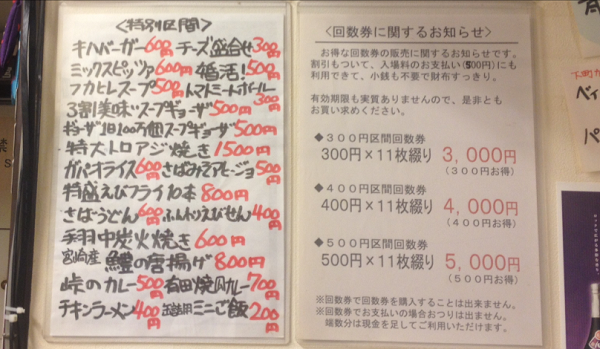 〈特別区間〉
キハバーガー600円 チーズ盛合せ300円
ミックスピッツァ600円 婚活!500円
フカヒレスープ500円 トマトミートボール300円
3割美味スープギョーザ500円
ギョーザ1日100万個スープギョーザ500円
特大トロアジ焼き1500円
ガパオライス600円 さばみそアヒージョ500円
特盛えびフライ10本800円
さばうどん600円 ふんわりえびせん400円
手羽中炭火焼き600円
宮崎産 鱧の唐揚げ800円
峠のカレー500円 有田焼カレー700円
チキンラーメン400円 ミニご飯200円
〈回数券に関するお知らせ〉
お得な回数券の販売に関するお知らせです。
割引もついて、入場料のお支払い(500円)にも
利用できて、小銭も不要で財布すっきり。
有効期限も実質ありませんので、是非とも
お買い求めください。
◆300円区間回数券
300円×11枚綴り 3,000円
(300円お得)
◆400円区間回数券
400円×11枚綴り 4,000円
(400円お得)
◆500円区間回数券
500円×11枚綴り 5,000円
(500円お得)
※回数券で回数券を購入することは出来ません。
※回数券でお支払いの場合おつりは出ません。
端数分は現金を足してご利用いただけます。